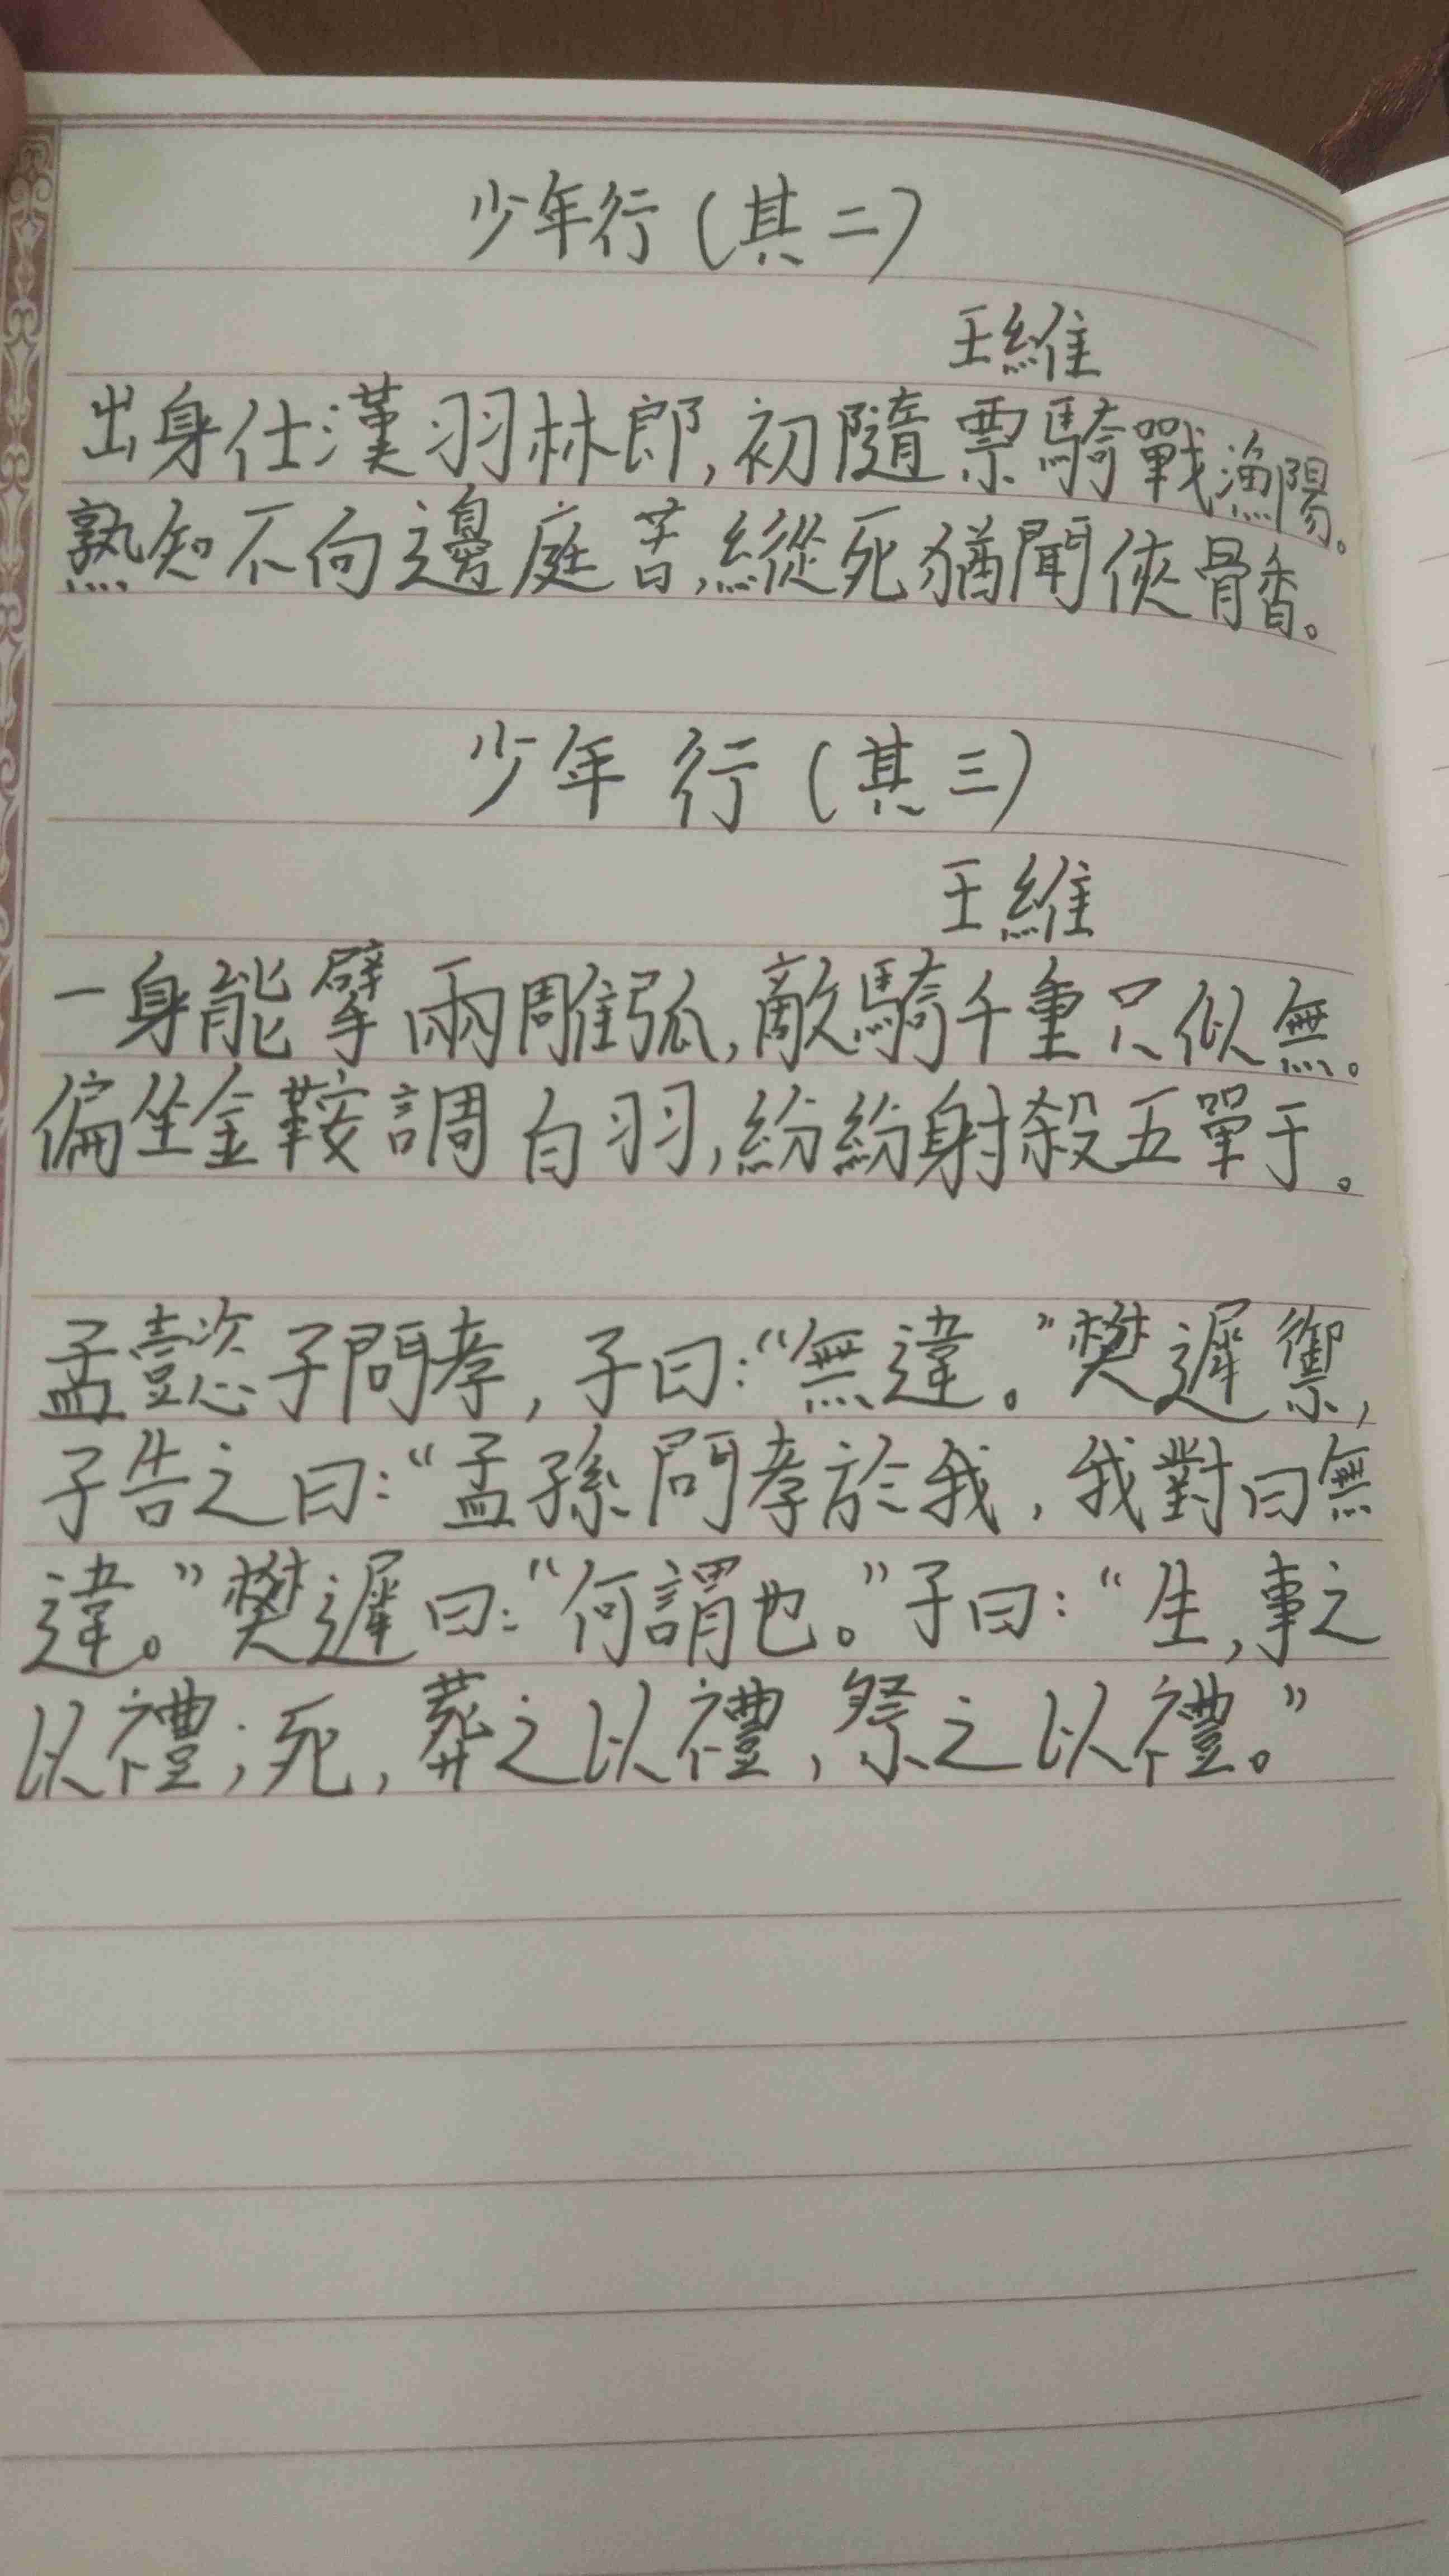 少年行(其二)
王維
出身仕漢羽林郎,初隨票騎戰漁陽。
熟知不向邊庭苦,縱死猶聞俠骨香。
少年行(其三)
王維
一身能擘兩雕弧,敵騎千重只似無。
偏坐金鞍調白羽,紛紛射殺五單于。
孟懿子問孝,子曰:“無違。”樊遲禦,
子告之曰:“孟孫問孝於我,我對曰無
違。”樊遲曰:“何謂也。”子曰:“生,事之
以禮;死,葬之以禮,祭之以禮。”